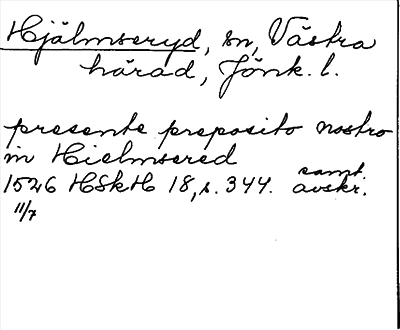 Hjälmseryd, sn, Västra
härad, Jönk. l.
presente preposito nostro
in Hielmsered
samt.
1526 HSkH 18, s. 344. avskr.
11/7